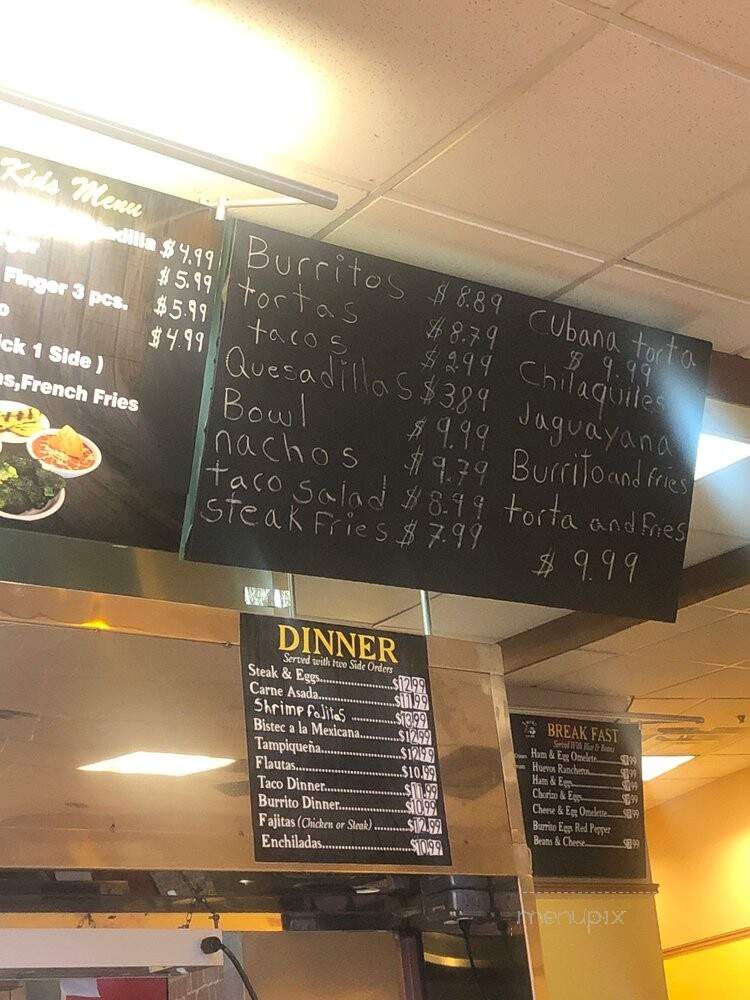 Kids Menu
$4.99
$5.99
Finger 3 pcs. $5.99
$4.99
ck 1 Side )
s,French Fries
Burritos $8.89
tortas $8.79
tacos $2.99
Quesadillas $3.89
Bowl $9.99
nachos $9.79
taco salad $8.99
steak Fries $7.99
Cubana torta
$9.99
Chilaquiles
Jaguayana
Burrito and fries
torta and fries
$9.99
DINNER
Served with two Side Orders
Steak & Eggs............$12.99
Carne Asada............$11.99
Shrimp fajitas ............$13.99
Bistec a la Mexicana............$12.99
Tampiqueña............$12.99
Flautas............$10.99
Taco Dinner............$11.99
Burrito Dinner............$10.99
Fajitas (Chicken or Steak) ............$12.99
Enchiladas............$10.99
BREAK FAST
Served With Rice & Beans
Ham & Egg Omelete
Huevos Rancheros
Ham & Eggs
Chorizo & Eggs
Cheese & Egg Omelette
Burrito Eggs Red Pepper
Beans & Cheese
menupix